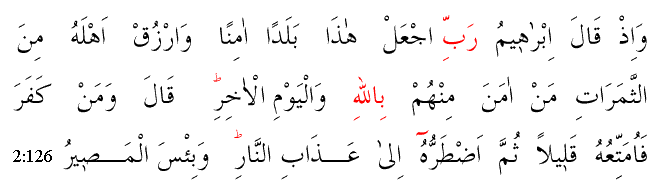 وَاِذْ قَالَ اِبْرٰهٖيمُ رَبِّ اجْعَلْ هٰذَا بَلَدًا اٰمِنًا وَارْزُقْ اَهْلَهُ مِنَ
الثَّمَرَاتِ مَنْ اٰمَنَ مِنْهُمْ بِاللّٰهِ وَالْيَوْمِ الْاٰخِرِؕ قَالَ وَمَنْ كَفَرَ
فَاُمَتِّعُهُ قَلٖيلاً ثُمَّ اَضْطَرُّهُٓ اِلىٰ عَـذَابِ النَّارِؕ وَبِئْسَ الْمَـصٖيرُ 2:126